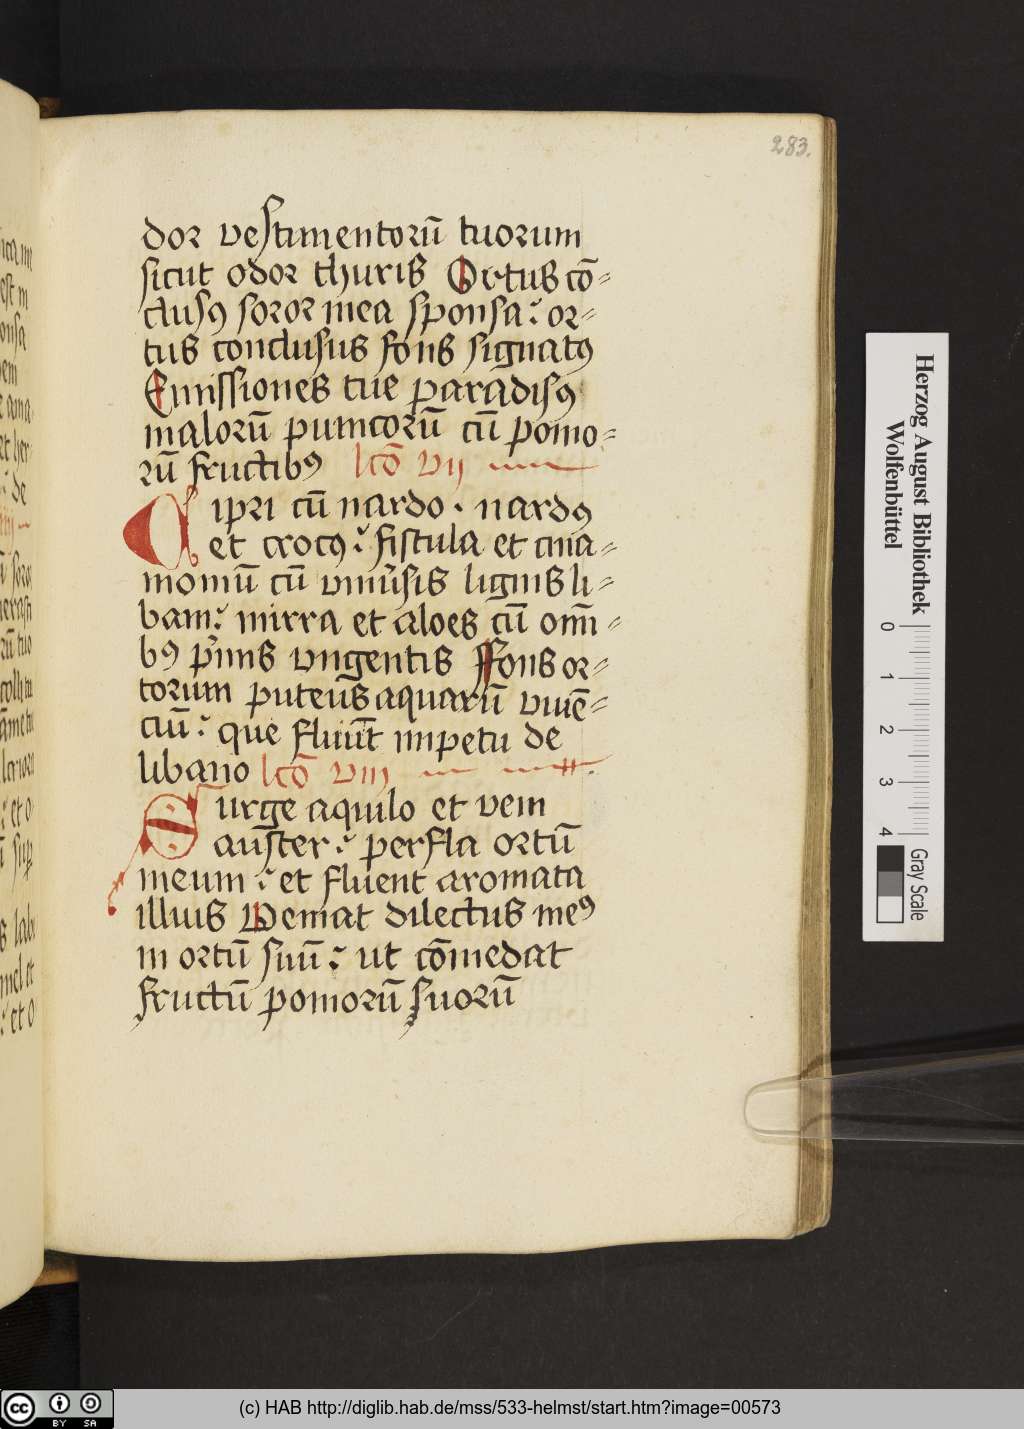 283.
dor vestimentorū tuorum
sicut odor thuris Ortus cō⸗
clusꝯ soror mea sponsa: or⸗
tus conclusus fons signatꝯ
Emissiones tue paradisꝯ
malorū punicorū cū pomo⸗
rū fructibꝯ lcō vij
Cipri cū nardo. nardꝯ
et crocꝯ: fistula et cina⸗
momū cū vniūsis lignis li⸗
bani: mirra et aloes cū om̄i⸗
bꝯ pͥmis vngentis ffons or⸗
torum puteus aquarū viuē⸗
ciū: que fluūt impetu de
libano lcō viij
Surge aquilo et veni
auster: perfla ortū
meum: et fluent aromata
illius Veniat dilectus meꝯ
in ortū suū: ut cōmedat
fructū pomorū suorū
Herzog August Bibliothek
Wolfenbüttel
0 1 2 3 4
Gray Scale
cc BY SA
(c) HAB http://diglib.hab.de/mss/533-helmst/start.htm?image=00573